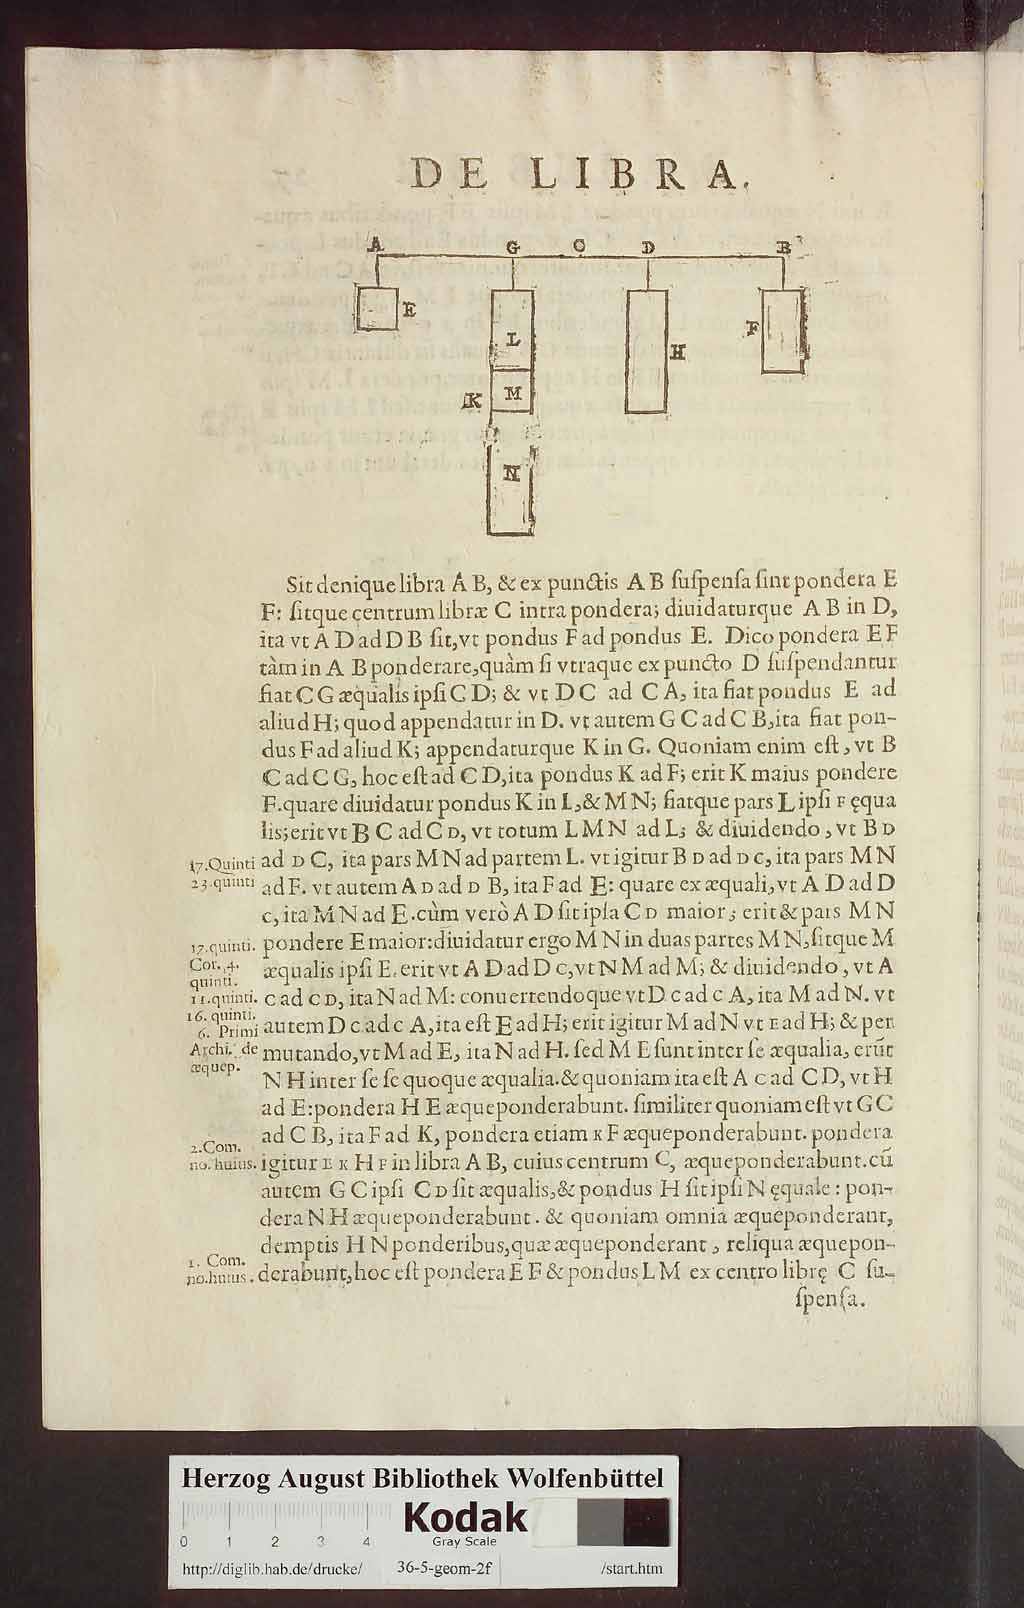 DE LIBRA.
A G C D B
E
L
F
H
K M
N
Sit denique libra A B, & ex punctis A B ſuſpenſa ſint pondera E
F: ſitque centrum libræ C intra pondera; diuidaturque A B in D,
ita vt A D ad D B ſit, vt pondus F ad pondus E. Dico pondera E F
tàm in A B ponderare, quàm ſi vtraque ex puncto D ſuſpendantur
fiat C G æqualis ipſi C D; & vt D C ad C A, ita fiat pondus E ad
aliud H; quod appendatur in D. vt autem G C ad C B, ita fiat pon-
dus F ad aliud K; appendaturque K in G. Quoniam enim eſt, vt B
C ad C G, hoc eſt ad C D, ita pondus K ad F; erit K maius pondere
F. quare diuidatur pondus K in L, & M N; fiatque pars L ipſi F ęqua
lis; erit vt B C ad C D, vt totum L M N ad L; & diuidendo, vt B D
17. Quinti ad D C, ita pars M N ad partem L. vt igitur B D ad D C, ita pars M N
23. quinti ad F. vt autem A D ad D B, ita F ad E: quare ex æquali, vt A D ad D
C, ita M N ad E. cùm verò A D ſit ipſa C D maior; erit & pars M N
17. quinti. pondere E maior: diuidatur ergo M N in duas partes M N, ſitque M
Cor. 4. quinti. æqualis ipſi E. erit vt A D ad D C, vt N M ad M; & diuidendo, vt A
11. quinti. C ad C D, ita N ad M: conuertendoque vt D C ad C A, ita M ad N. vt
16. quinti. 6. Primi autem D C ad C A, ita eſt E ad H; erit igitur M ad N vt E ad H; & per
Archi. de mutando, vt M ad E, ita N ad H. ſed M E ſunt inter ſe æqualia, erūt
æquep. N H inter ſe ſe quoque æqualia. & quoniam ita eſt A C ad C D, vt H
ad E: pondera H E æqueponderabunt. ſimiliter quoniam eſt vt G C
2. Com. ad C B, ita F ad K, pondera etiam K F æqueponderabunt. pondera
no. huius. igitur E K H F in libra A B, cuius centrum C, æqueponderabunt. cū
autem G C ipſi C D ſit æqualis, & pondus H ſit ipſi N ęquale: pon-
dera N H æqueponderabunt. & quoniam omnia æqueponderant,
demptis H N ponderibus, quæ æqueponderant, reliqua æquepon-
1. Com. no. huius. derabunt, hoc eſt pondera E F & pondus L M ex centro librę C ſu-
ſpenſa.
Herzog August Bibliothek Wolfenbüttel
Kodak
0 1 2 3 4 Gray Scale
http://diglib.hab.de/drucke/ 36-5-geom-2f /start.htm